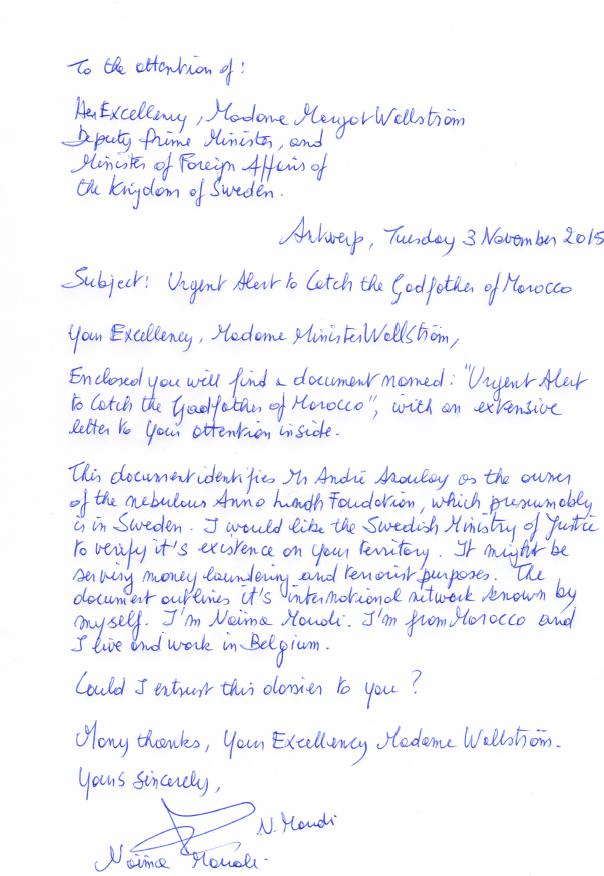 To the attention of:
Her Excellency, Madame Margot Wallström
Deputy Prime Minister, and
Minister of Foreign Affairs of
the Kingdom of Sweden.
Antwerp, Tuesday 3 November 2015
Subject: Urgent Alert to Catch the Godfather of Morocco
Your Excellency, Madame Minister Wallström,
Enclosed you will find a document named: "Urgent Alert
to Catch the Godfather of Morocco", with an extensive
letter to Your attention inside.
This document identifies Mr André Azoulay as the owner
of the nebulous Anna Lindh Foundation, which presumably
is in Sweden. I would like the Swedish Ministry of Justice
to verify it's existence on your territory. It might be
serving money laundering and terrorist purposes. The
document outlines it's international network known by
myself. I'm Naïma Moudi. I'm from Morocco and
I live and work in Belgium.
Could I entrust this dossier to you?
Many thanks, Your Excellency Madame Wallström.
Yours sincerely,
N. Moudi
Naïma Moudi.